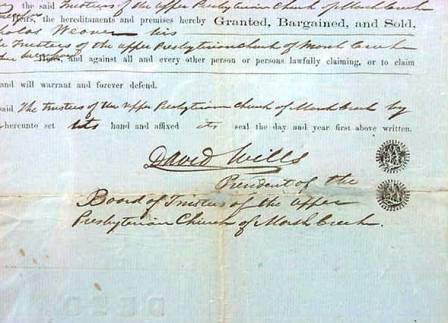 the said Trustees of the Upper Presbyterian Church of Marsh Creek
the hereditaments and premises hereby Granted, Bargained, and Sold,
Weaver his
Trustees of the Upper Presbyterian Church of Marsh Creek
and against all and every other person or persons lawfully claiming, or to claim
and will warrant and forever defend.
said The trustees of the Upper Presbyterian Church of Marsh Creek by
hereunto set its hand and affixed its seal the day and year first above written.
David Wills
President of the
Board of Trustees of the Upper
Presbyterian Church of Marsh Creek.